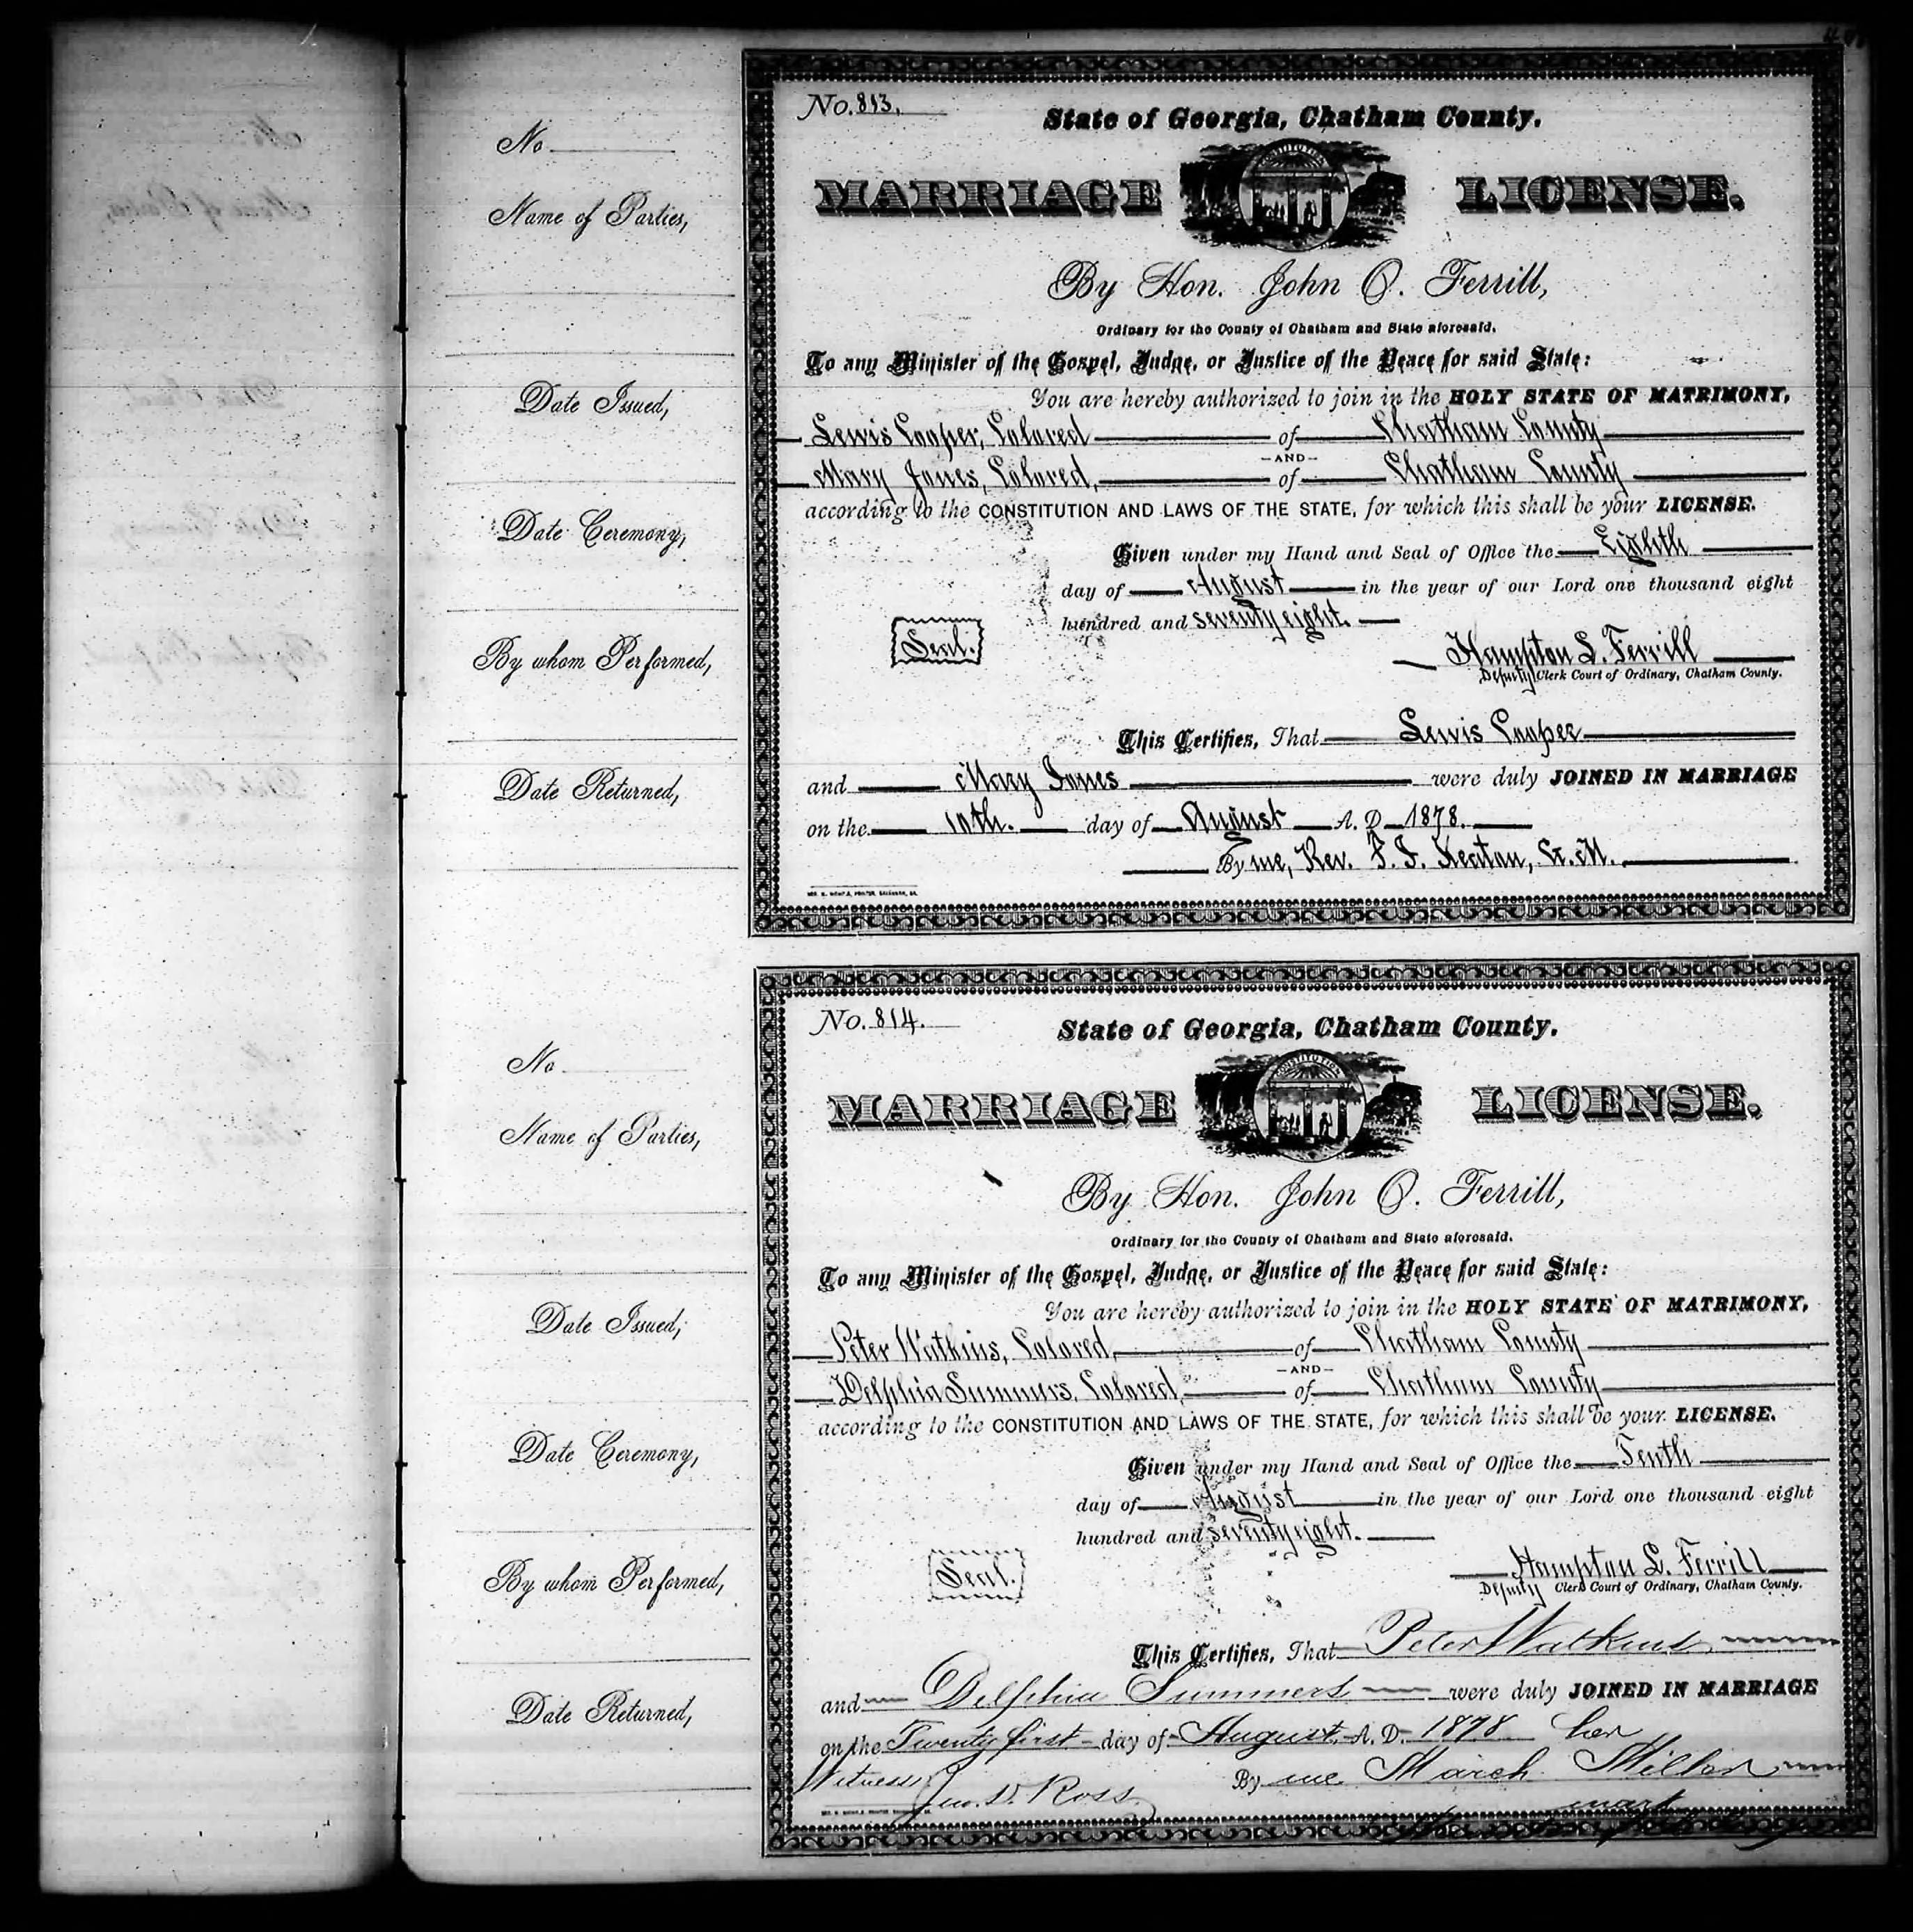 No. 813.
State of Georgia, Chatham County.
MARRIAGE LICENSE.
CONSTITUTION
By Hon. John O. Ferrill,
Ordinary for the County of Chatham and State aforesaid.
To any Minister of the Gospel, Judge, or Justice of the Peace for said State:
You are hereby authorized to join in the HOLY STATE OF MATRIMONY,
Lewis Cooper, Colored of Chatham County
AND
Mary Jones, Colored, of Chatham County
according to the CONSTITUTION AND LAWS OF THE STATE, for which this shall be your LICENSE.
Given under my Hand and Seal of Office the Eighth
day of August in the year of our Lord one thousand eight
hundred and seventy eight.
Seal.
Hampton L. Ferrill
Deputy Clerk Court of Ordinary, Chatham County.
This Certifies, That Lewis Cooper
and Mary Jones were duly JOINED IN MARRIAGE
on the 10th. day of August A. D. 1878.
By me, Rev. F. J. G. M.
No
Name of Parties,
Date Issued,
Date Ceremony,
By whom Performed,
Date Returned,
No. 814.
State of Georgia, Chatham County.
MARRIAGE LICENSE.
CONSTITUTION
By Hon. John O. Ferrill,
Ordinary for the County of Chatham and State aforesaid.
To any Minister of the Gospel, Judge, or Justice of the Peace for said State:
You are hereby authorized to join in the HOLY STATE OF MATRIMONY,
Peter Watkins, Colored, of Chatham County
AND
Delphia Summers, Colored, of Chatham County
according to the CONSTITUTION AND LAWS OF THE STATE, for which this shall be your LICENSE.
Given under my Hand and Seal of Office the Tenth
day of August in the year of our Lord one thousand eight
hundred and seventy eight.
Seal.
Hampton L. Ferrill
Deputy Clerk Court of Ordinary, Chatham County.
This Certifies, That Peter Watkins
and Delphia Summers were duly JOINED IN MARRIAGE
on the Twenty first day of August A. D. 1878 her
Witness By me March Miller
D. Ross mark
No
Name of Parties,
Date Issued,
Date Ceremony,
By whom Performed,
Date Returned,